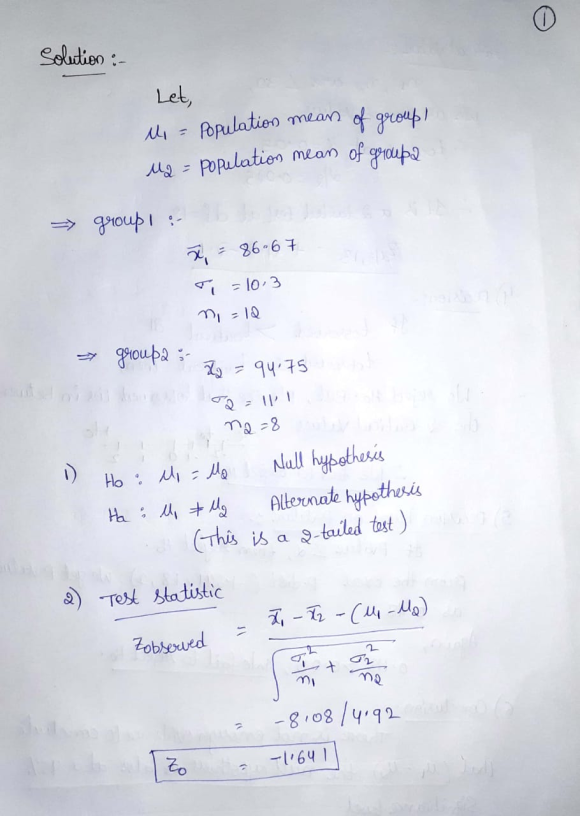 ①
Solution :-
Let,
μ₁ = Population mean of group1
μ₂ = population mean of group2
⇒ group1 :-
x̄₁ = 86.67
σ₁ = 10.3
n₁ = 12
⇒ group2 :-
x̄₂ = 94.75
σ₂ = 11.1
n₂ = 8
1) H₀ : μ₁ = μ₂ Null hypothesis
Ha : μ₁ ≠ μ₂ Alternate hypothesis
(This is a 2-tailed test)
2) Test statistic
Zobserved = x̄₁ - x̄₂ - (μ₁ - μ₂) / √(σ₁²/n₁ + σ₂²/n₂)
= -8.08 / 4.92
Z₀ = -1.641